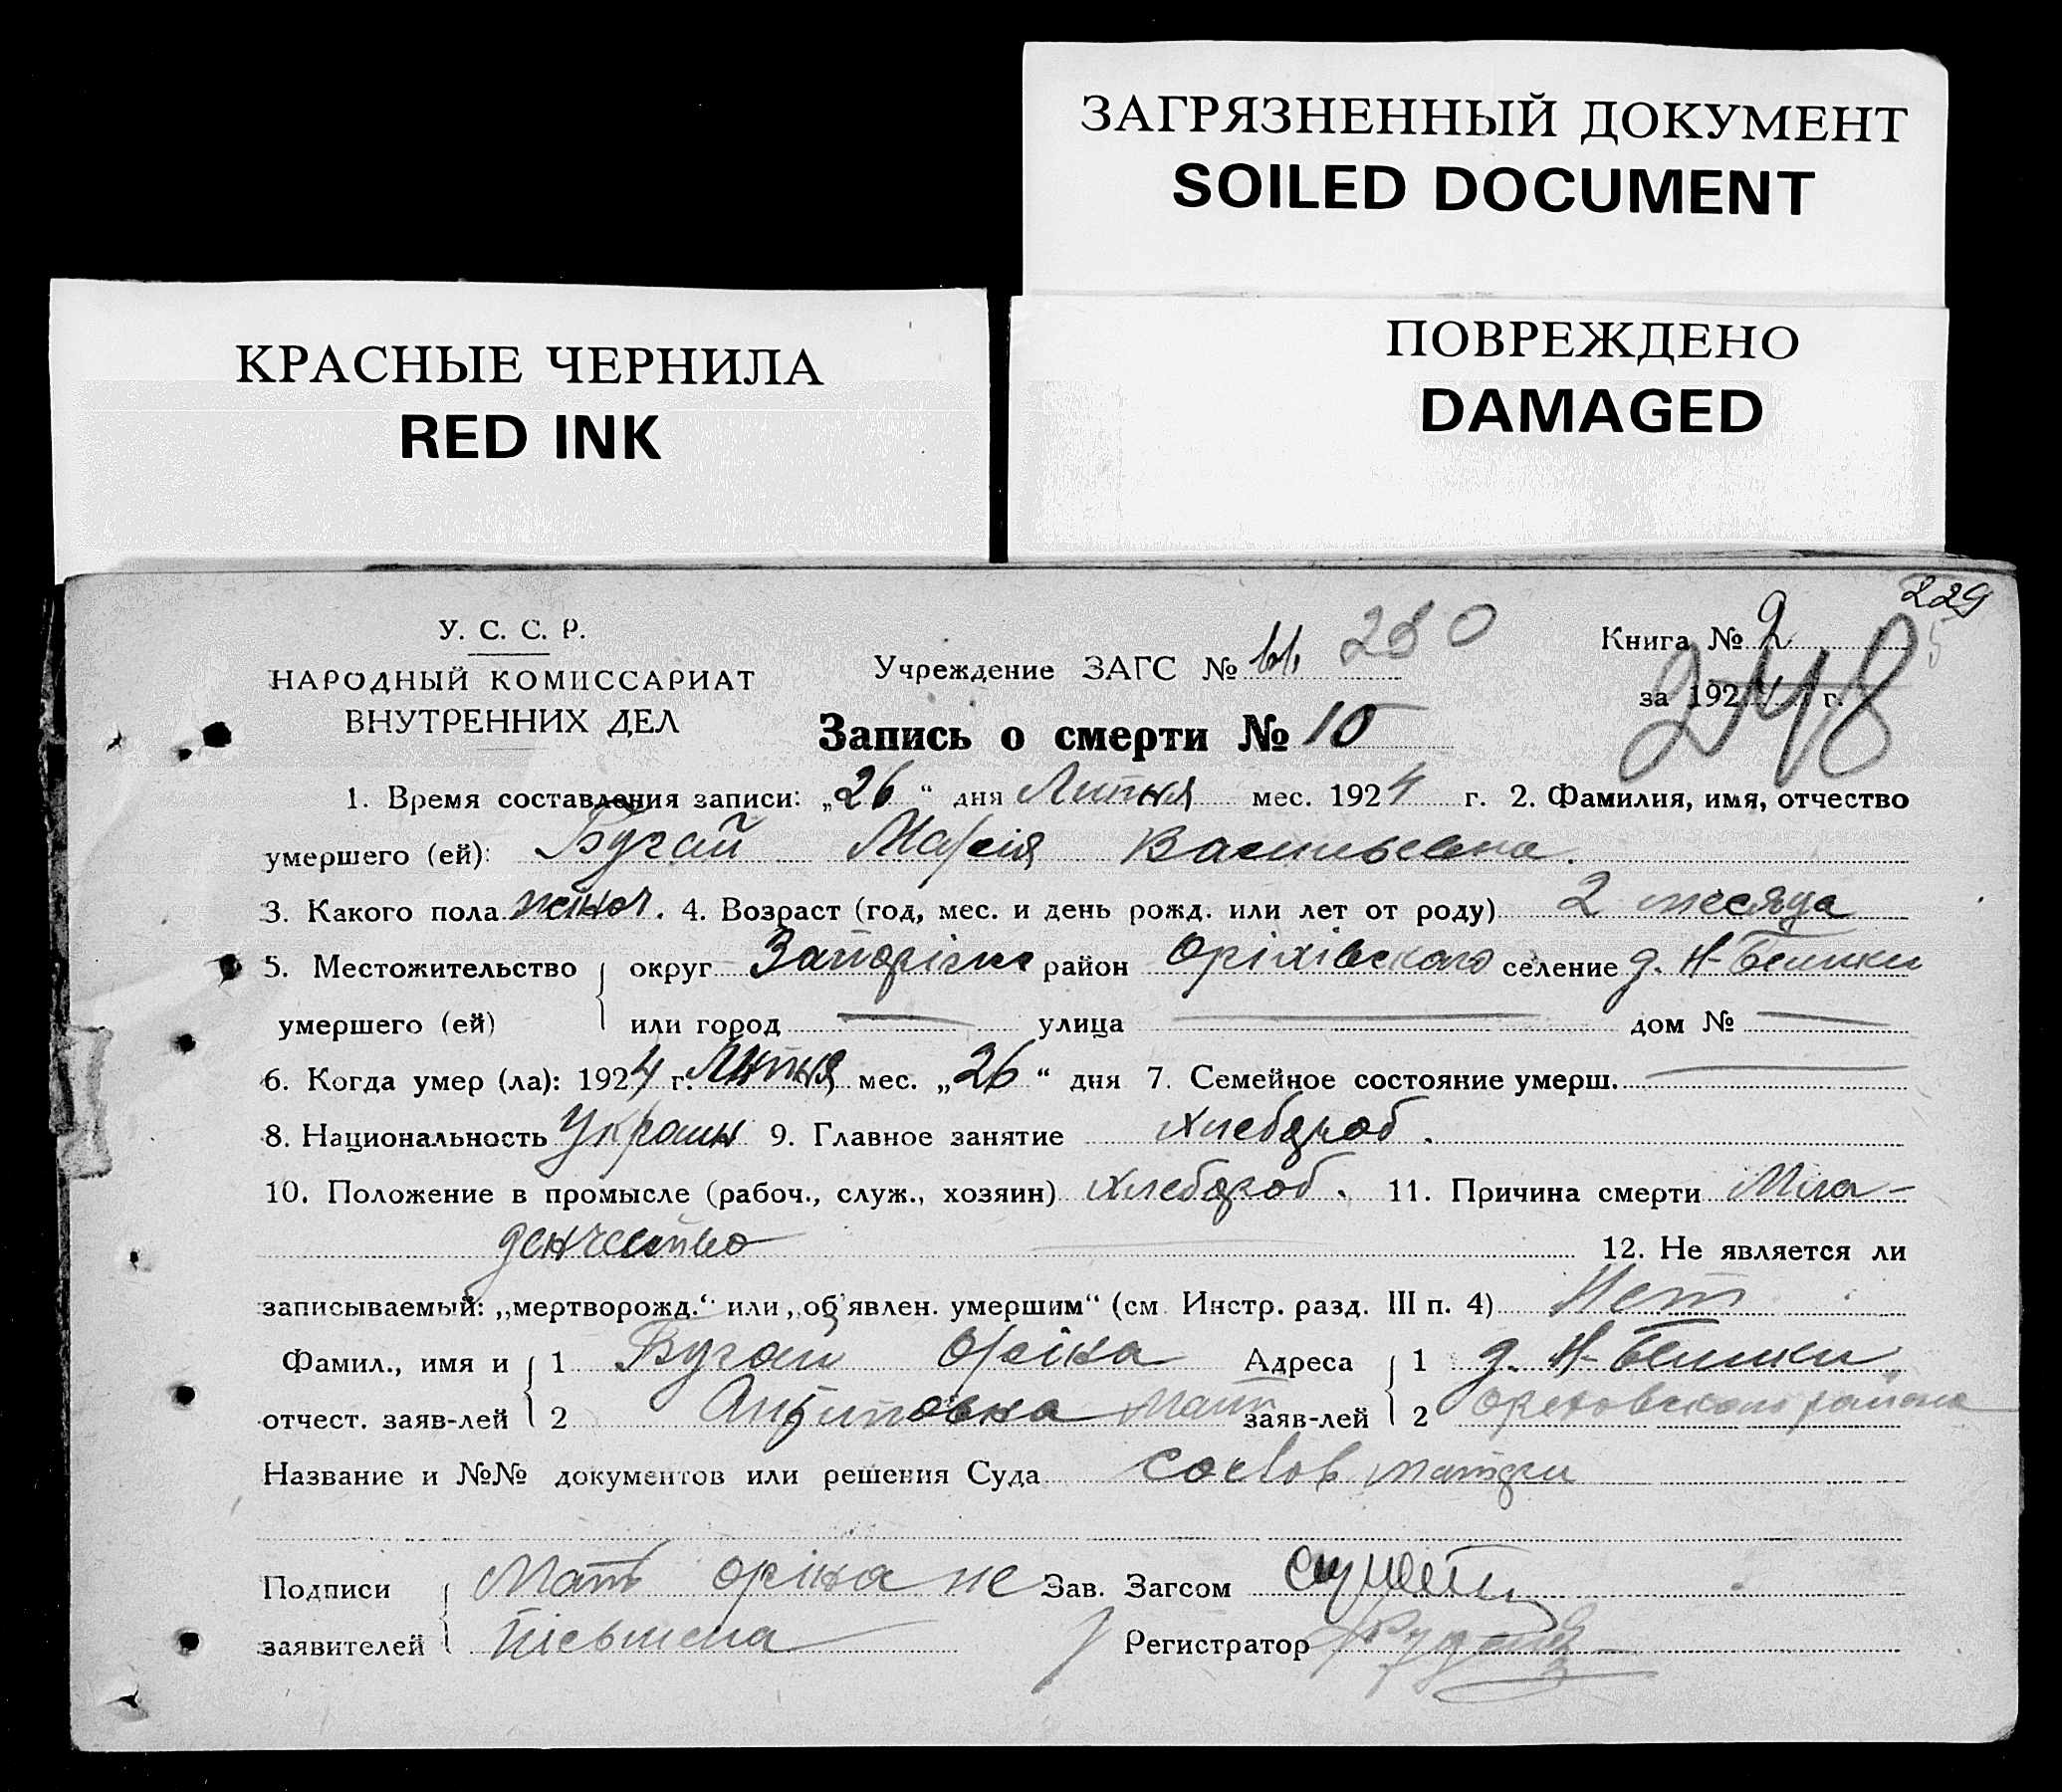 ЗАГРЯЗНЕННЫЙ ДОКУМЕНТ
SOILED DOCUMENT
КРАСНЫЕ ЧЕРНИЛА
RED INK
ПОВРЕЖДЕНО
DAMAGED
229
У. С. С. Р.
НАРОДНЫЙ КОМИССАРИАТ
ВНУТРЕННИХ ДЕЛ
Учреждение ЗАГС № 280
Книга № 2
248
за 1924 г.
Запись о смерти № 10
1. Время составления записи: „26“ дня Липня мес. 1924 г. 2. Фамилия, имя, отчество
умершего (ей): Бугай Марія Васильевна.
3. Какого пола женск. 4. Возраст (год, мес. и день рожд. или лет от роду) 2 месяца
5. Местожительство округ Запоріжж район Оріхівского селение д. Н-
умершего (ей) или город — улица — дом № —
6. Когда умер (ла): 1924 г. Липня мес. „26“ дня 7. Семейное состояние умерш. —
8. Национальность Украин 9. Главное занятие хлебороб.
10. Положение в промысле (рабоч., служ., хозяин) хлебороб. 11. Причина смерти Мла-
денчество 12. Не является ли
записываемый: „мертворожд.“ или „об'явлен. умершим“ (см. Инстр. разд. III п. 4) Нет
Фамил., имя и 1 Бугай Оріна Адреса 1 д. Н-
отчест. заяв-лей 2 мать заяв-лей 2 Ореховского района
Название и №№ документов или решения Суда со слов матери
Подписи Мать Оріна не Зав. Загсом
заявителей пісьмена Регистратор